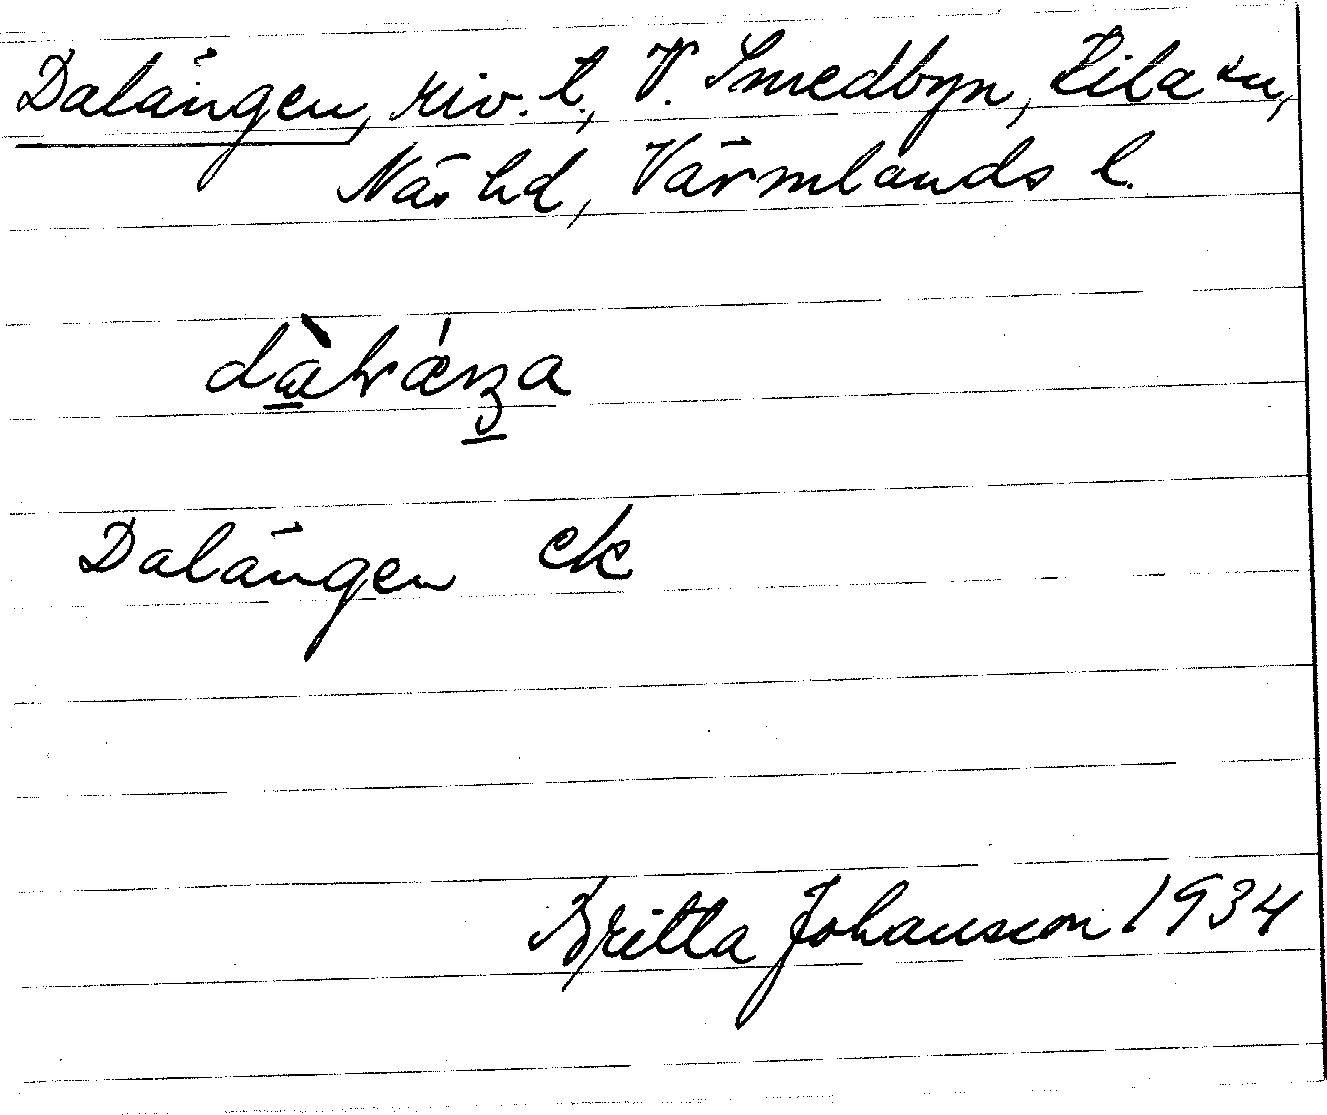 Dalängen, riv. t., V. Smedbyn, Kila sn,
Näs hd, Värmlands l.
Dalängen ek
Britta Johansson 1934